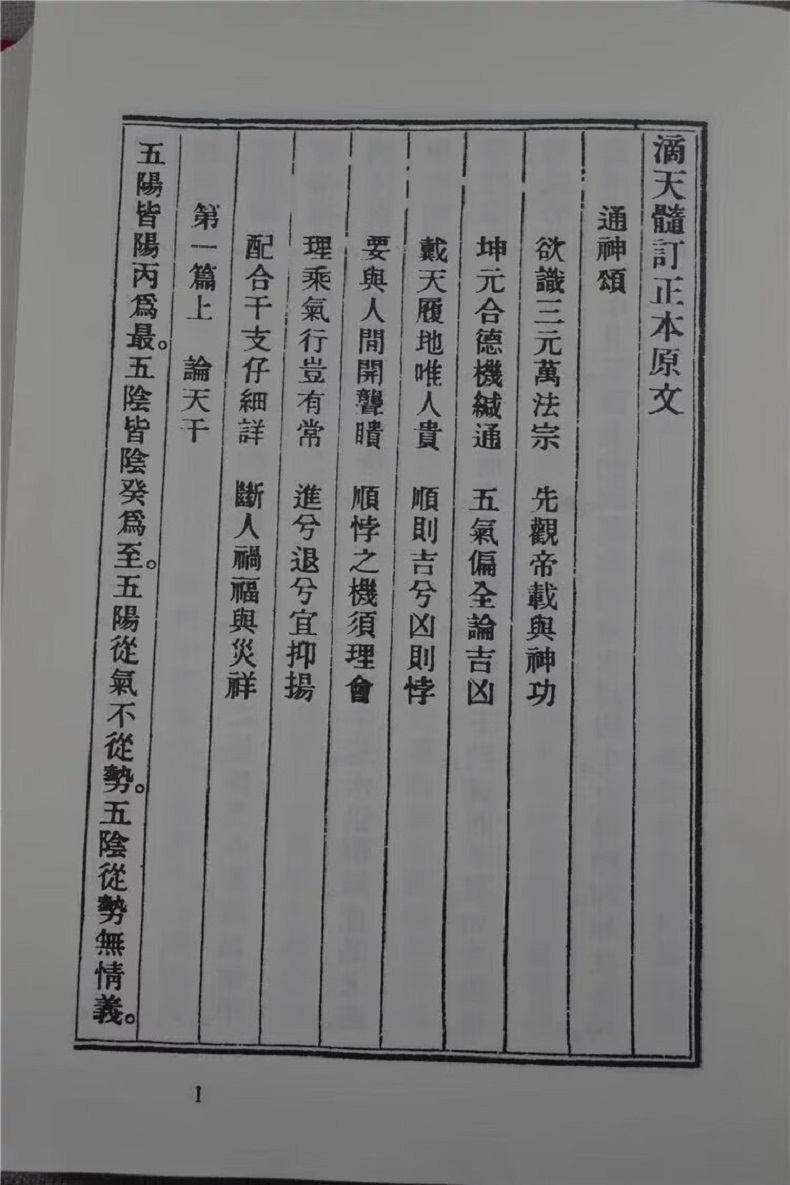 滴天髓訂正本原文
通神頌
欲識三元萬法宗　先觀帝載與神功
坤元合德機緘通　五氣偏全論吉凶
戴天履地唯人貴　順則吉兮凶則悖
要與人間開聾聵　順悖之機須理會
理乘氣行豈有常　進兮退兮宜抑揚
配合干支仔細詳　斷人禍福與災祥
第一篇上　論天干
五陽皆陽丙爲最。五陰皆陰癸爲至。五陽從氣不從勢。五陰從勢無情義。
1